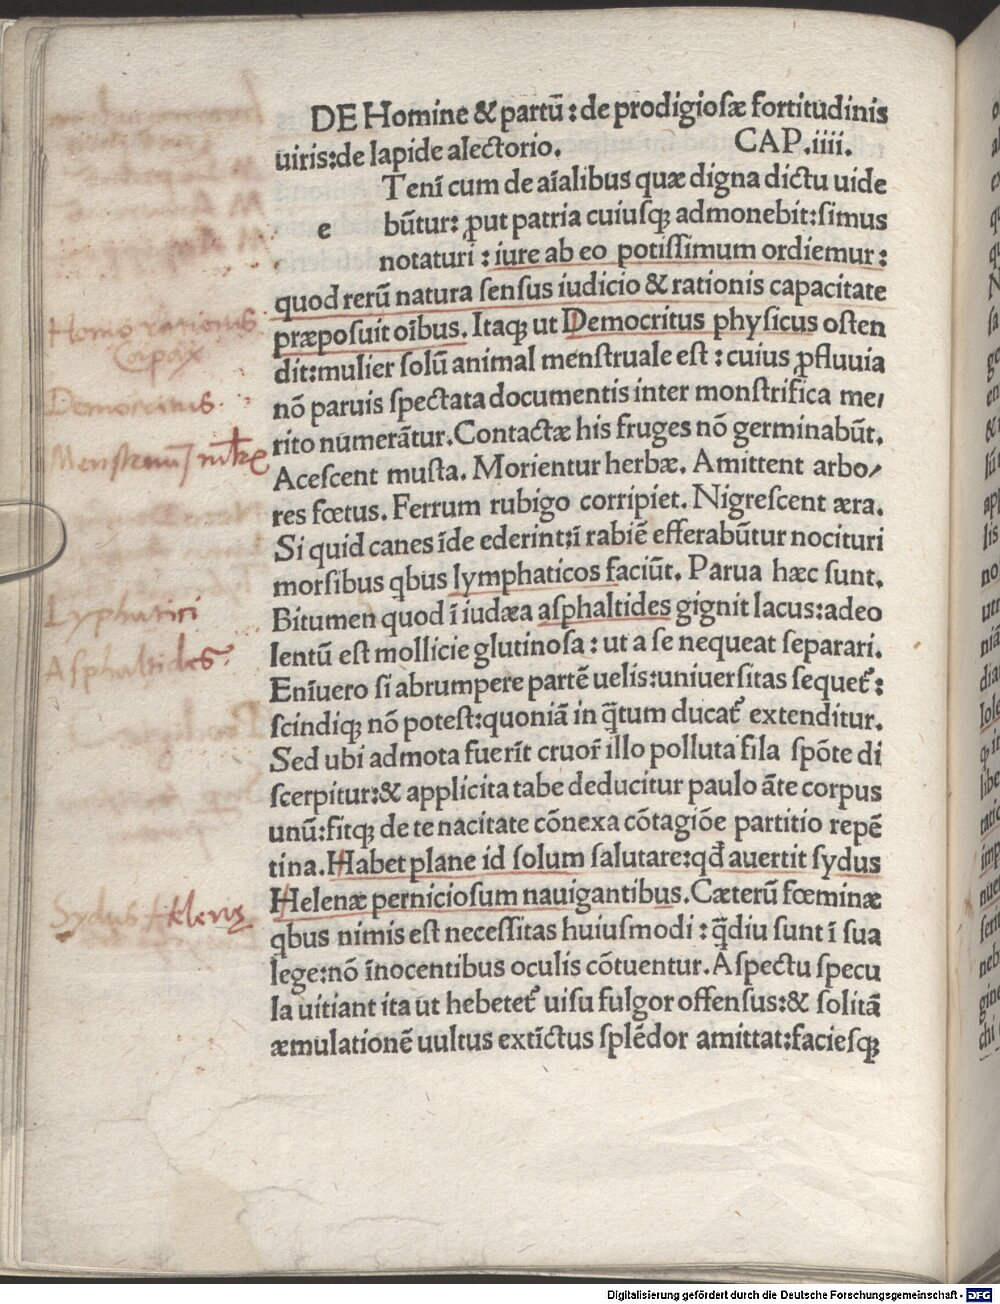 DE Homine & partū: de prodigiosæ fortitudinis
uiris:de lapide alectorio. CAP.iiii.
Tenī cum de aīalibus quæ digna dictu uide
e būtur: ꝓut patria cuiusqꝫ admonebit:simus
notaturi: iure ab eo potissimum ordiemur:
quod rerū natura sensus iudicio & rationis capacitate
præposuit oībus. Itaqꝫ ut Democritus physicus osten
dit:mulier solū animal menstruale est: cuius ꝓfluuia
nō paruis spectata documentis inter monstrifica me/
rito numerātur. Contactæ his fruges nō germinabūt.
Acescent musta. Morientur herbæ. Amittent arbo/
res fœtus. Ferrum rubigo corripiet. Nigrescent æra.
Si quid canes īde ederint:ī rabiē efferabūtur nocituri
morsibus qbus lymphaticos faciūt. Parua hæc sunt.
Bitumen quod ī iudæa asphaltides gignit lacus:adeo
lentū est mollicie glutinosa: ut a se nequeat separari.
Enīuero si abrumpere partē uelis:uniuersitas sequet᷑:
scindiqꝫ nō potest:quoniā in q̄tum ducat᷑ extenditur.
Sed ubi admota fuerīt cruor᷑ illo polluta fila spōte di
scerpitur:& applicita tabe deducitur paulo āte corpus
unū:fitqꝫ de te nacitate cōnexa cōtagiōe partitio repē
tina. Habet plane id solum salutare:qđ auertit sydus
Helenæ perniciosum nauigantibus. Cæterū fœminæ
qbus nimis est necessitas huiusmodi: q̄diu sunt ī sua
lege:nō īnocentibus oculis cōtuentur. Aspectu specu
la uitiant ita ut hebetet᷑ uisu fulgor offensus:& solitā
æmulationē uultus extīctus splēdor amittat:faciesqꝫ
Homo rationis
Capax
Democritus
Lyphatici
Asphaltides
Sydus Helenę
Digitalisierung gefördert durch die Deutsche Forschungsgemeinschaft - DFG